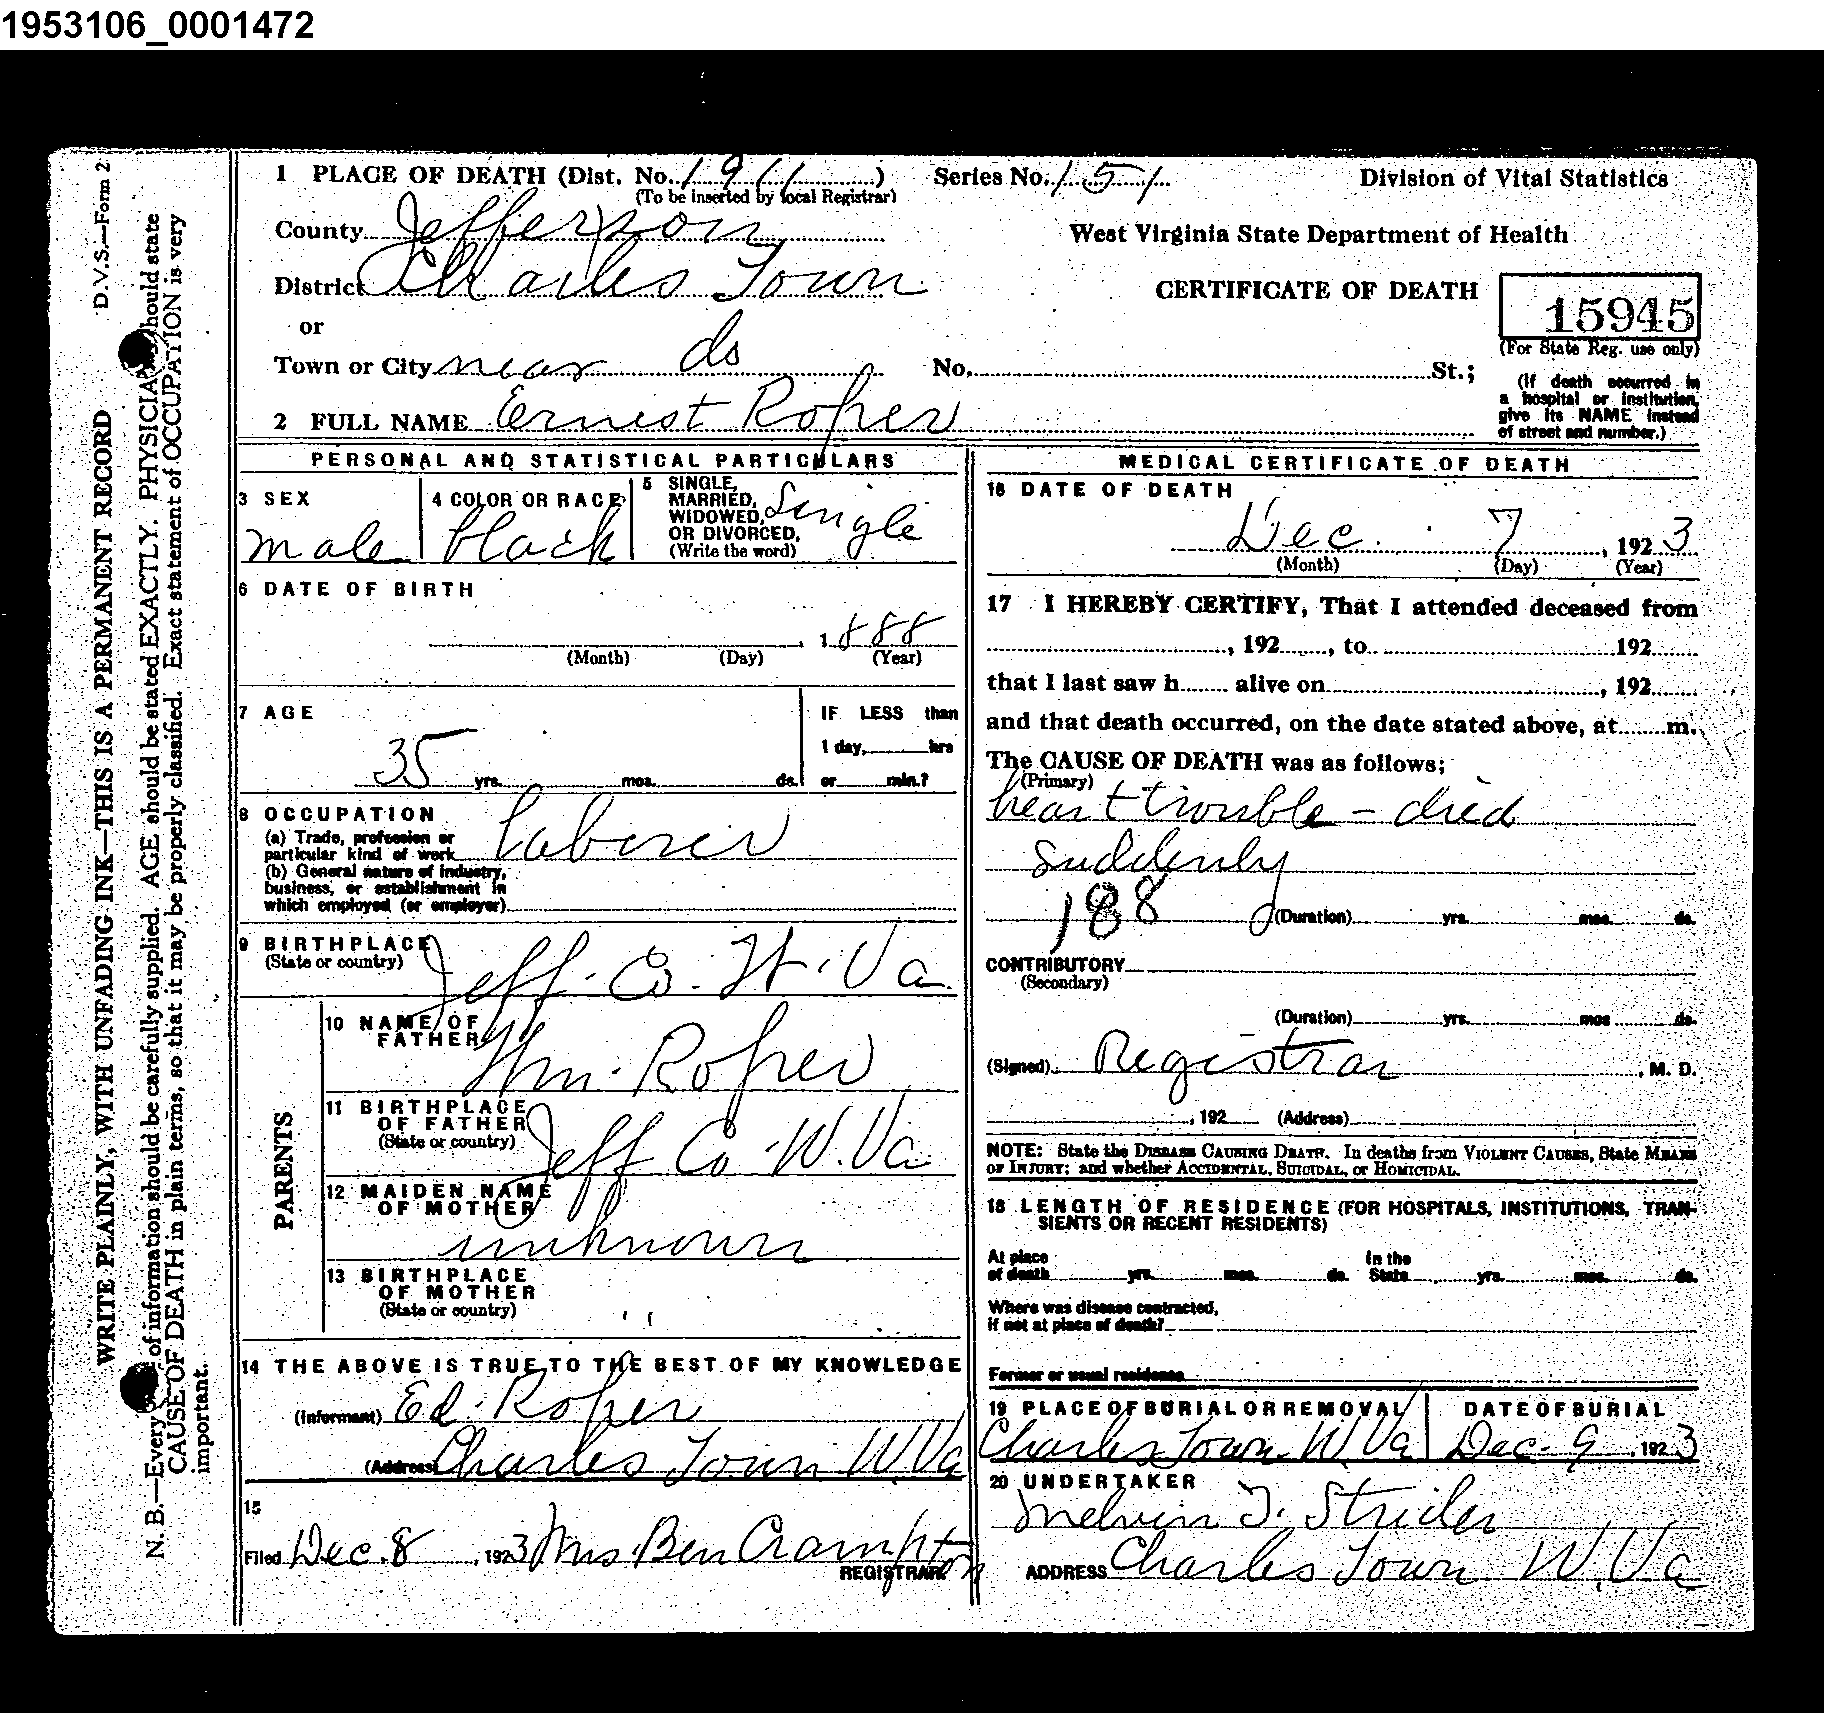 1953106_0001472
D.V.S.—Form 2
WRITE PLAINLY, WITH UNFADING INK—THIS IS A PERMANENT RECORD
N. B.—Every of information should be carefully supplied. AGE should be stated EXACTLY. PHYSICIA should state
CAUSE OF DEATH in plain terms, so that it may be properly classified. Exact statement of OCCUPATION is very
important.
1 PLACE OF DEATH (Dist. No. 1911) Series No. 151 Division of Vital Statistics
(To be inserted by local Registrar)
County Jefferson West Virginia State Department of Health
District Charles Town CERTIFICATE OF DEATH 15945
or
Town or City near do No. St.; (For State Reg. use only)
(If death occurred in
a hospital or institution,
give its NAME instead
of street and number.)
2 FULL NAME Ernest Roper
PERSONAL AND STATISTICAL PARTICULARS
3 SEX
male
4 COLOR OR RACE
black
5 SINGLE,
MARRIED,
WIDOWED,
OR DIVORCED,
(Write the word)
Single
6 DATE OF BIRTH
1888
(Month) (Day) (Year)
7 AGE
35 yrs. mos. ds.
IF LESS than
1 day, hrs
or min.?
8 OCCUPATION
(a) Trade, profession or
particular kind of work laborer
(b) General nature of industry,
business, or establishment in
which employed (or employer)
9 BIRTHPLACE
(State or country) Jeff. Co. W. Va.
PARENTS
10 NAME OF
FATHER Wm. Roper
11 BIRTHPLACE
OF FATHER
(State or country) Jeff Co W. Va.
12 MAIDEN NAME
OF MOTHER
unknown
13 BIRTHPLACE
OF MOTHER
(State or country) ' '
14 THE ABOVE IS TRUE TO THE BEST OF MY KNOWLEDGE
(Informant) Ed. Roper
(Address) Charles Town W. Va
15
Filed Dec. 8, 1923 Mrs. Ben Crampton
REGISTRAR
MEDICAL CERTIFICATE OF DEATH
16 DATE OF DEATH
Dec. 7, 1923
(Month) (Day) (Year)
17 I HEREBY CERTIFY, That I attended deceased from
, 192 , to 192
that I last saw h alive on , 192
and that death occurred, on the date stated above, at m.
The CAUSE OF DEATH was as follows;
(Primary)
heart trouble - died
suddenly
188 (Duration) yrs. mos. ds.
CONTRIBUTORY
(Secondary)
(Duration) yrs. mos ds.
(Signed) Registrar , M. D.
, 192 (Address)
NOTE: State the DISEASE CAUSING DEATH. In deaths from VIOLENT CAUSES, State MEANS
OF INJURY; and whether ACCIDENTAL, SUICIDAL, or HOMICIDAL.
18 LENGTH OF RESIDENCE (FOR HOSPITALS, INSTITUTIONS, TRAN-
SIENTS OR RECENT RESIDENTS)
At place In the
of death yrs. mos. ds. State yrs. mos. ds.
Where was disease contracted,
if not at place of death?
Former or usual residence
19 PLACE OF BURIAL OR REMOVAL
Charles Town W. Va
DATE OF BURIAL
Dec. 9, 1923
20 UNDERTAKER
Melvin T. Strider
ADDRESS Charles Town W. Va